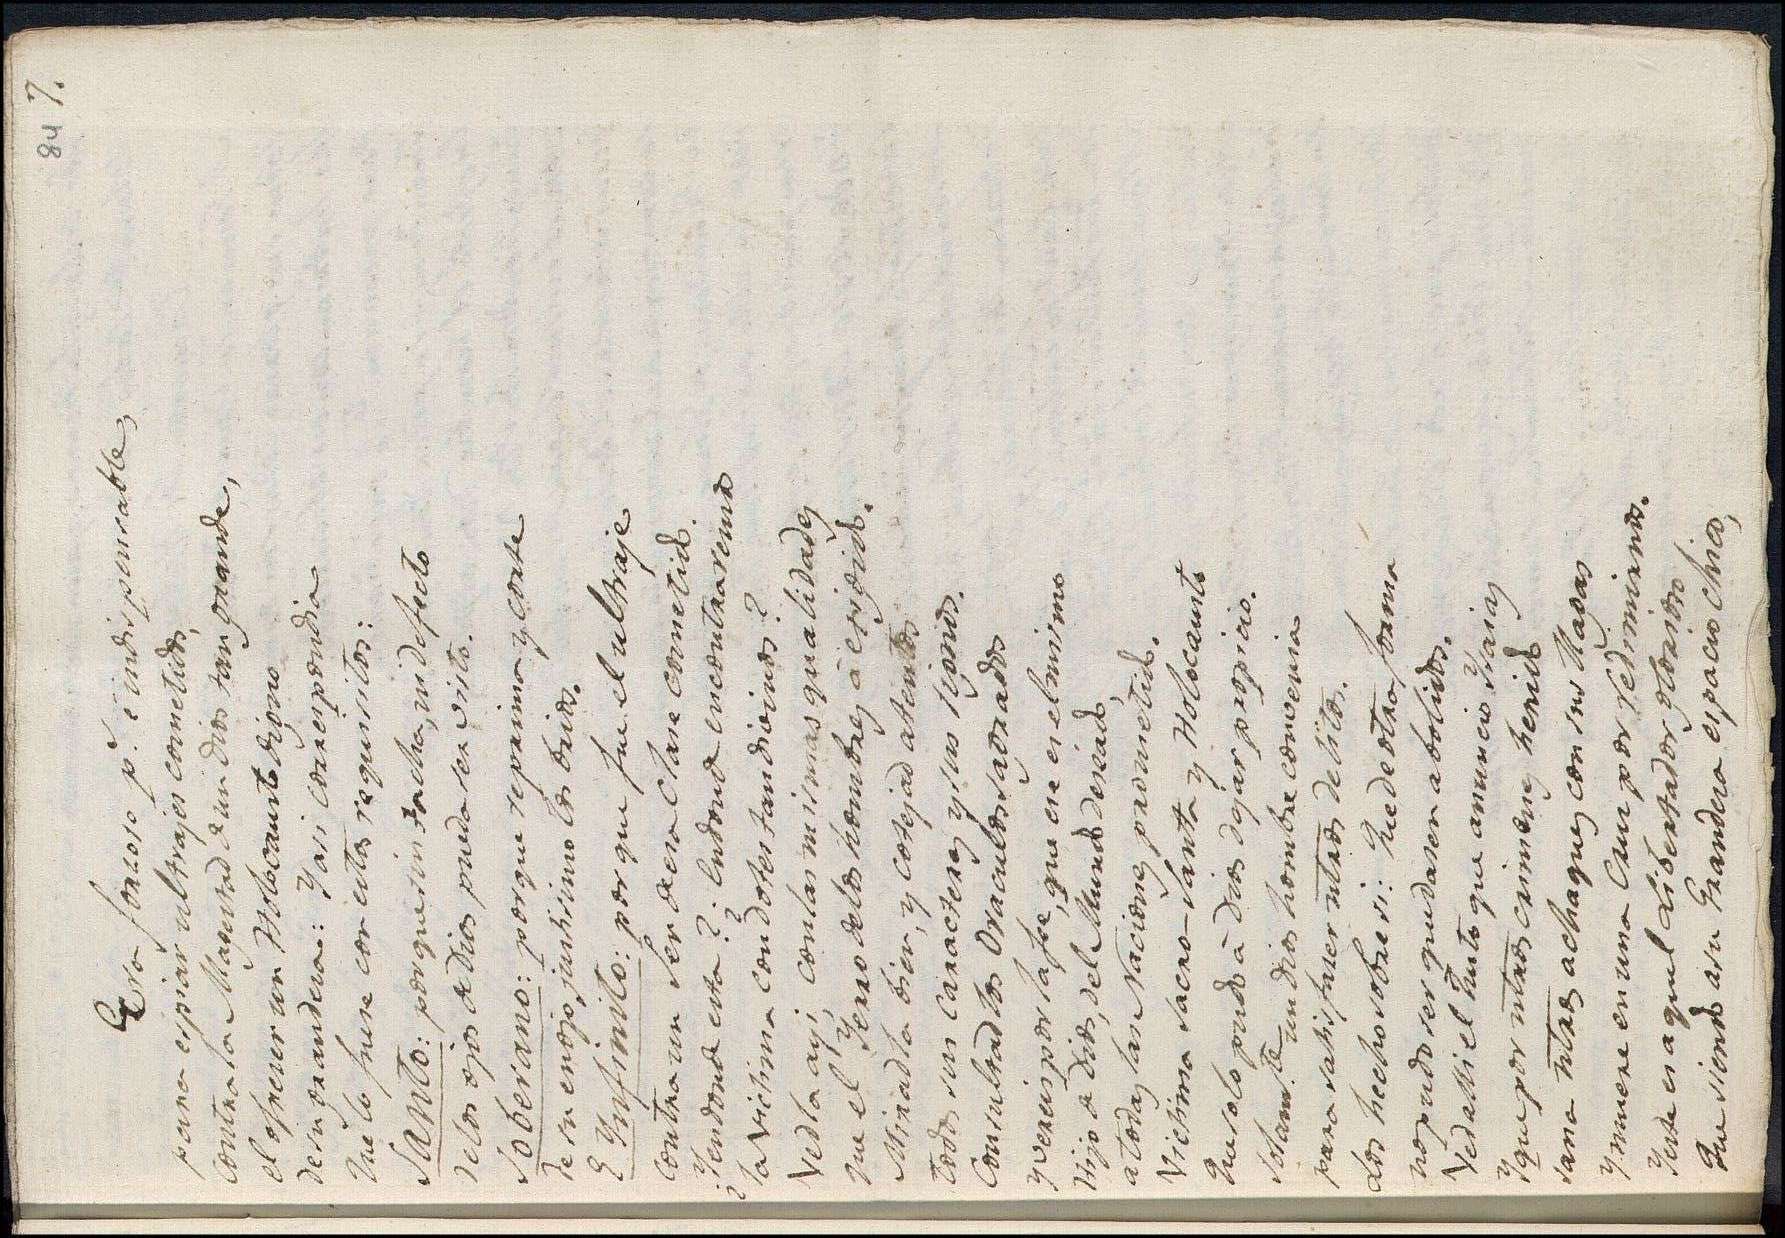 84 7.
Era forzoso p.ª é indispensable,
para espiar ultrajes cometidos,
contra la Magestad de un dios tan grande,
el ofrecer un Holocausto digno
de su grandeza: Y asi correspondia
Que lo fuese con estos requisitos:
Santo: porque sin tacha, ni defecto
de los ojos de Dios pueda ser visto.
Soberano: porque reprima y corte
de su enojo justisimo los brios.
E Ynfinito: por que fue el ultraje
contra un Ser de esa clase cometido.
Yendonde esta? Endonde encontraremos
la Victima con dotes tan divinos?
Vedla aqi, con las mismas qualidades
que el Yerro de los hombres à exigido.
Miradla bien, y cotejad atentos
todos sus caracteres y sus signos.
Consultad los Oraculos sagrados
y vereis por la fee, que ese es el mismo
Hijo de Dios, del Mundo deseado,
a todas las Naciones prometido.
Victima sacro-santa y Holocausto
Que solo pudo à Dios dejar propicio.
Solam.te un dios hombre convenia
para satisfacer ntros delitos.
Los hecho sobre si: Que de otra forma
no pudo ser quedasen abolidos.
Ved alli el Justo que anuncio Ysaias
Y que por ntros crimenes herido
sana ntros achaques con sus llagas
y muere en una Cruz por redimirnos.
Y este es aquel Libertador glorioso
Que siendo a su Grandeza espacio chico,